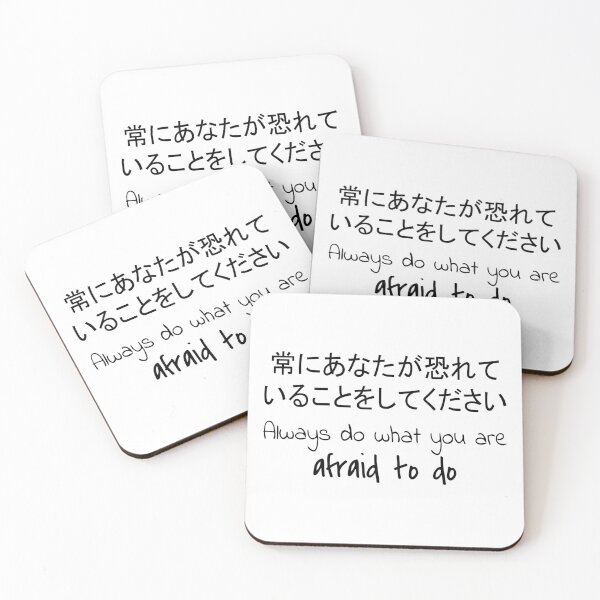 常にあなたが恐れて
いることをしてくださ
you
do
常にあなたが恐れて
いることをしてください
Always do what you are
afraid to do
常にあなたが恐れて
いることをしてください
Always do what you are
afraid to
常にあなたが恐れて
いることをしてください
Always do what you are
afraid to do